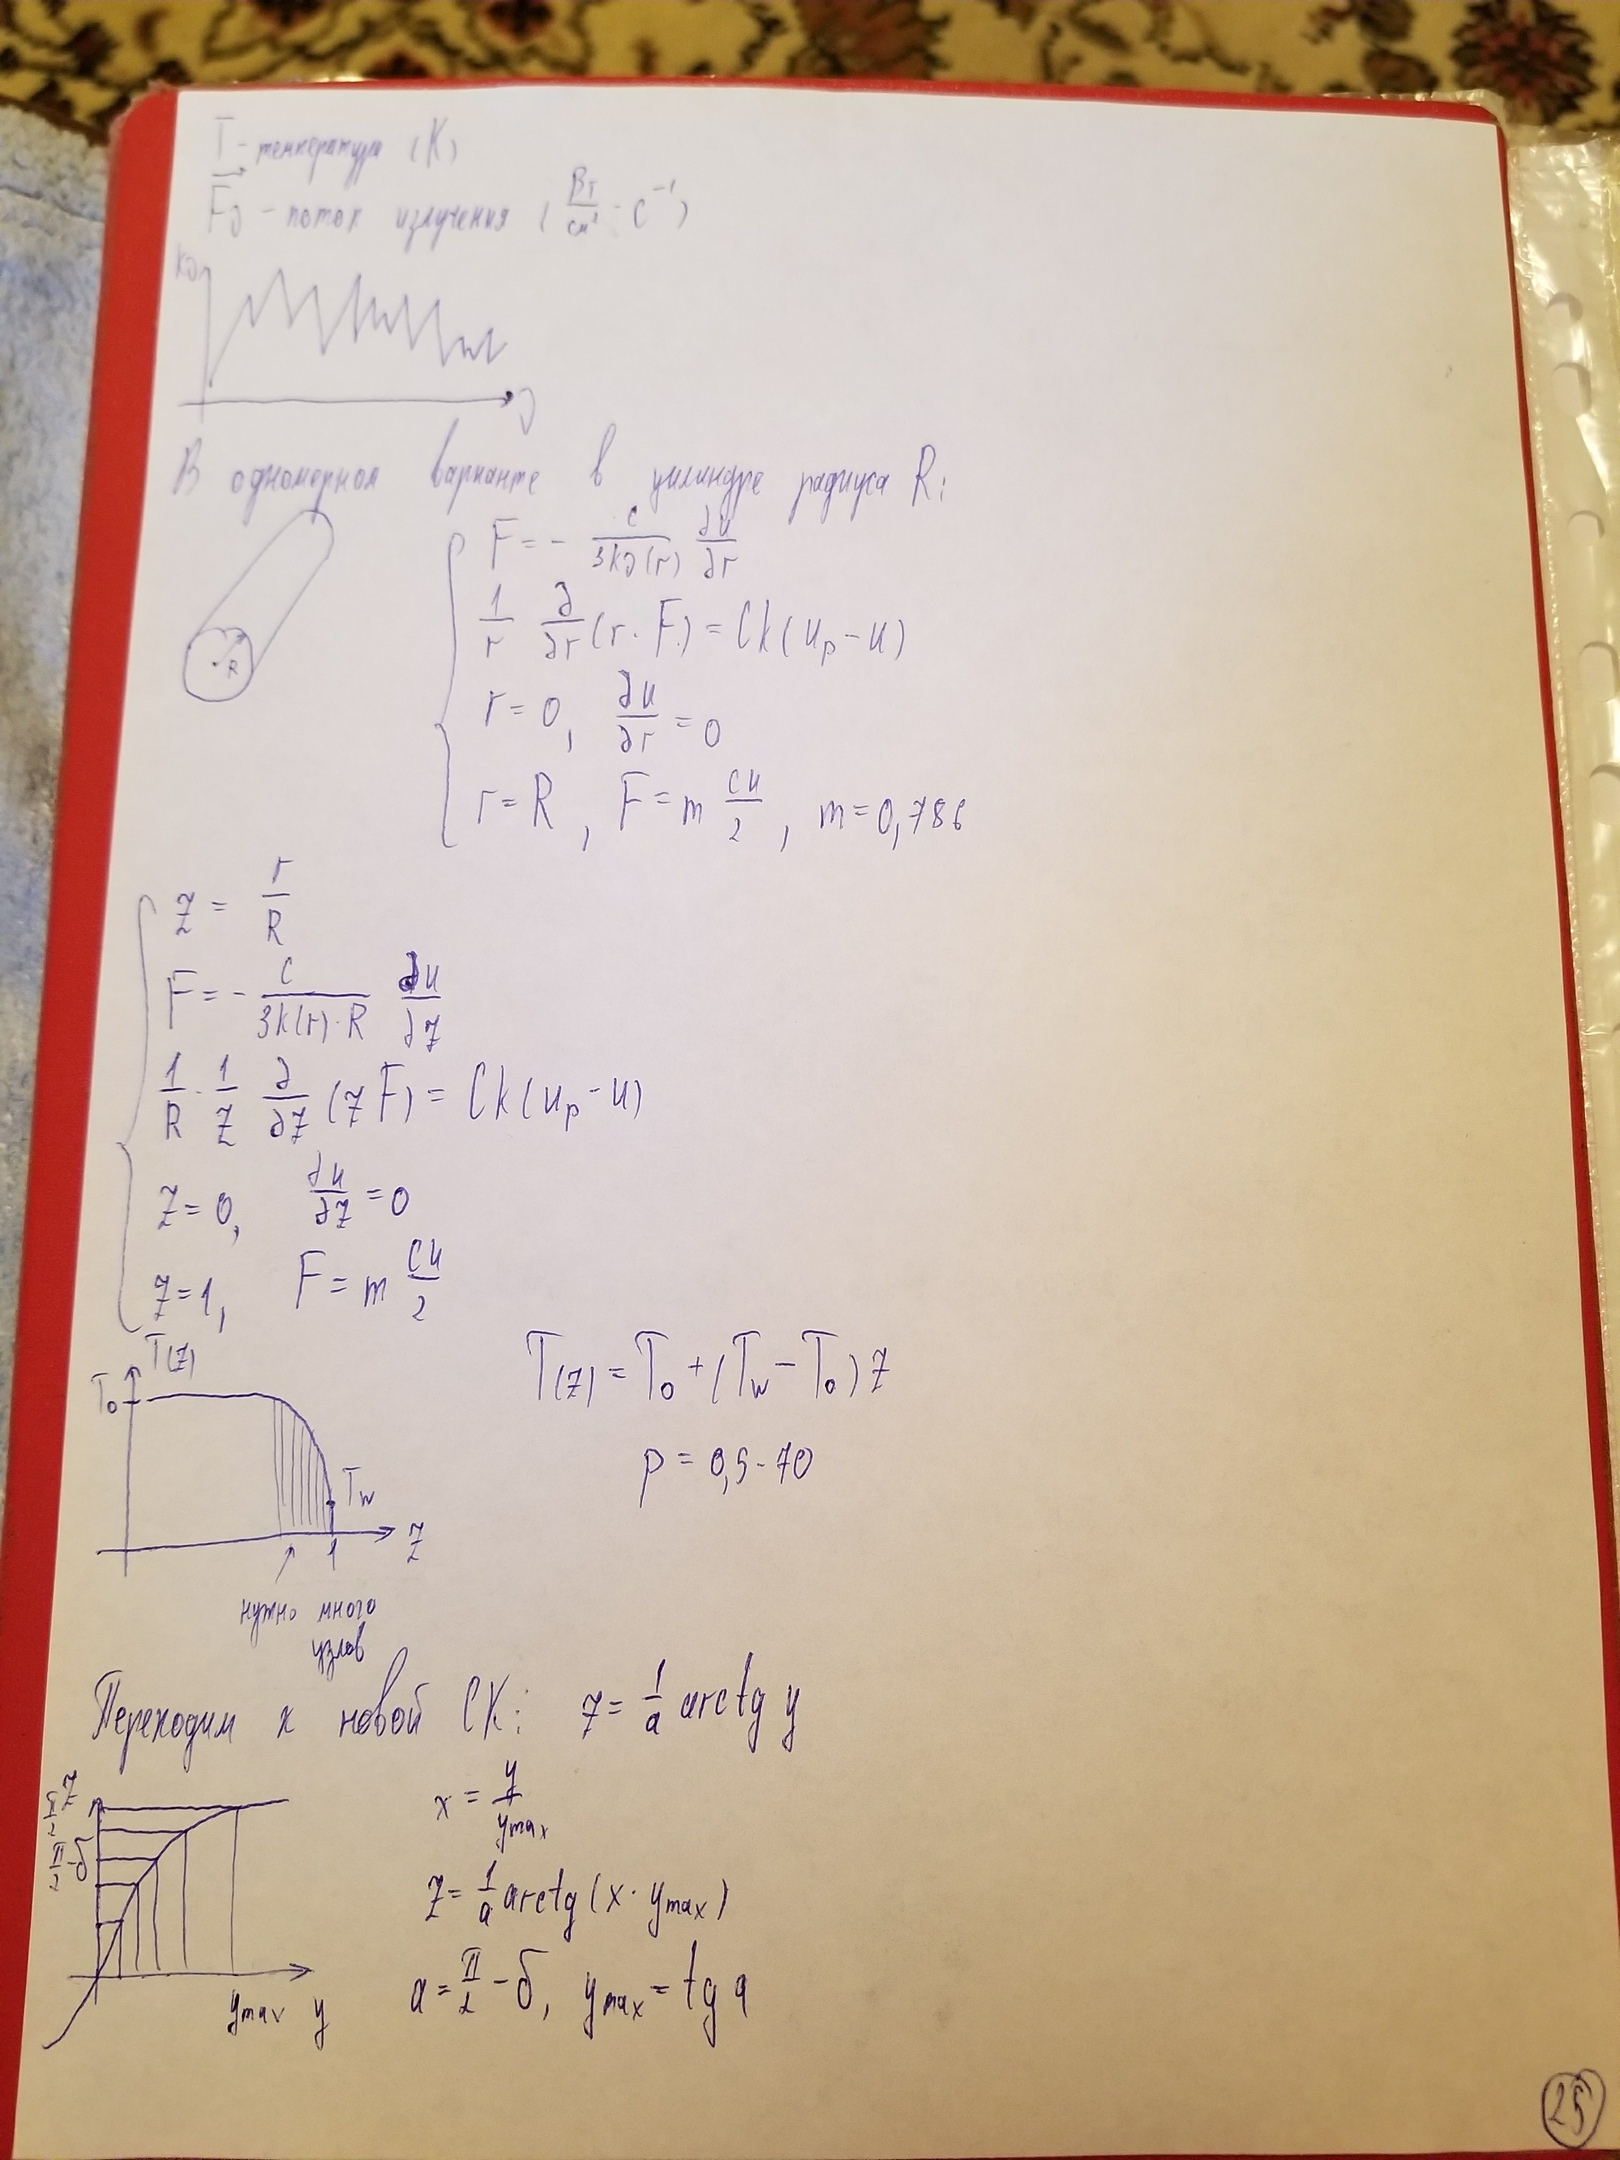 T - температура (К)
F⃗ν - поток излучения (Вт/см² · с⁻¹)
kν
ν
В одномерном варианте в цилиндре радиуса R:
R
F = - c/(3kν(r)) ∂u/∂r
1/r ∂/∂r (r · F) = Ck(uₚ - u)
r = 0, ∂u/∂r = 0
r = R, F = m cu/2, m = 0,786
z = r/R
F = - c/(3k(r)·R) ∂u/∂z
1/R · 1/z ∂/∂z (zF) = Ck(uₚ - u)
z = 0, ∂u/∂z = 0
z = 1, F = m cu/2
T(z)
T₀
T_w
1
z
нужно много
узлов
T(z) = T₀ + (T_w - T₀) z
p = 0,5 - 70
Переходим к новой СК: z = 1/a arctg y
z
π/2
π/2 - δ
y_max y
x = y/y_max
z = 1/a arctg (x · y_max)
a = π/2 - δ, y_max = tg a
25